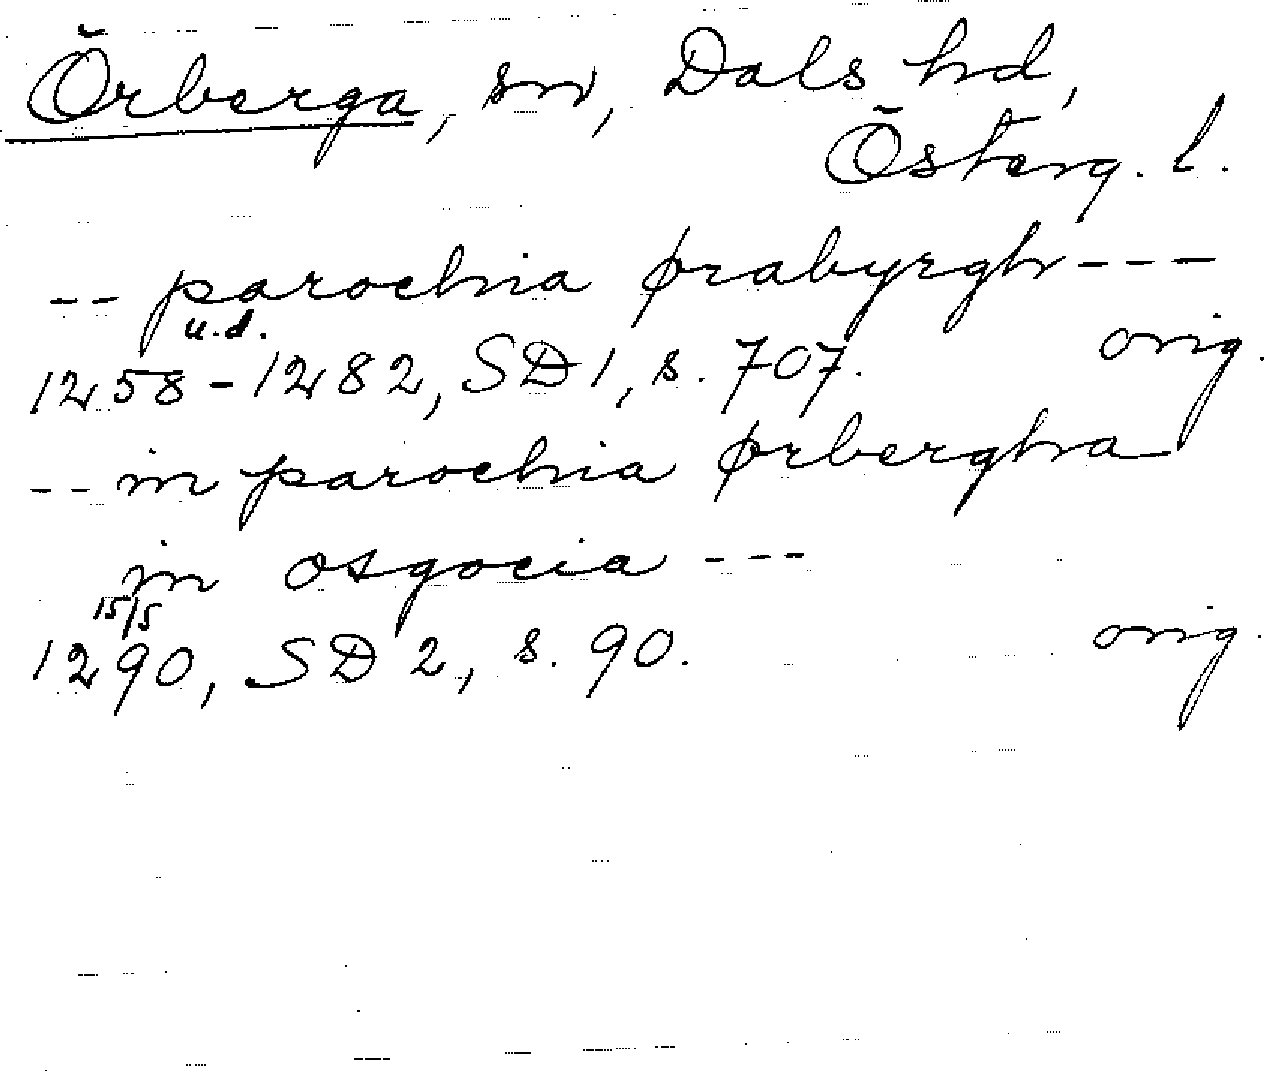 Örberga, sn, Dals hd,
Österg. l.
-- parochia ørabyrgh ---
u.d.
1258-1282, SD 1, s. 707. orig.
-- in parochia ørbergha
in osgocia ---
15/5
1290, SD 2, s. 90. orig.